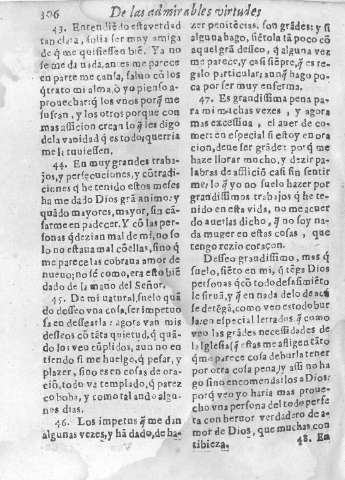 306 De las admirables virtudes
43. Entendiẽdo esta verdad
tan clara, solia ser muy amiga
de q̃ me quisiessen biẽ. Ya no
se me da nada, antes me parece
en parte me cansa, saluo cõ los
q̃ trato mi alma, ò yo pienso a-
prouechar: q̃ los vnos porq̃ me
sufran, y los otros porque con
mas afficion crean lo q̃ les digo
de la vanidad q̃ es todo; querria
me la tuuiessen.
44. En muy grandes traba-
jos, y persecuciones, y cõtradi-
ciones q̃ he tenido estos meses
ha me dado Dios grã animo: y
quãdo mayores, mayor, sin cã-
sarme en padecer. Y cõ las per-
sonas q̃ dezian mal de mi, no so
lo no estaua mal cõellas, sino q̃
me parece las cobraua amor de
nueuo; no sé como, era esto biẽ
dado de la mano del Señor.
45. De mi natural, suelo quã
do desseo vna cosa, ser impetuo
sa en dessearla: agora van mis
desseos cõ tãta quietud, q̃ quã-
do los veo cũplidos, aun no en
tiendo si me huelgo, q̃ pesar, y
plazer, sino es en cosas de oraci
õ, todo va templado, q̃ parez
co boba, y como tal ando algu-
nos dias.
46. Los impetus q̃ me dan
algunas vezes, y hã dado, de ha-
zer penitẽcias, son grãdes: y si
alguna hago, siẽtola tã poco cõ
aquel grã desseo, q̃ alguna vez
me parece, y casi siẽpre, q̃ es re-
galo particular: aunq̃ hago po-
ca por ser muy enferma.
47. Es grandissima pena pa-
ra mi muchas vezes, y agora
mas excessiua, el auer de co-
mer: en especial si estoy en ora
cion, deue ser grãde: porq̃ me
haze llorar mucho, y dezir pa-
labras de afflició casi sin sentir
me; lo q̃ yo no suelo hazer por
grandissimos trabajos q̃ he te-
nido en esta vida, no me acuer
do auerlas dicho, q̃ no soy na-
da muger en estas cosas, que
tengo rezio coraçon.
Desseo grandissimo, mas q̃
suelo, siẽto en mi, q̃ tẽga Dios
personas q̃ cõ todo desasimiẽto
le siruã, y q̃ en nada de lo de acã
se detẽgã, como veo es todo bur
la: en especial letrados: q̃ como
veo las grãdes necessidades de
la Iglesia, q̃ estas me afligen tãto
q̃ me parece cosa de burla tener
por otra cosa pena, y assi no ha
go sino encomẽdarlos a Dios:
porq̃ veo yo haria mas proue-
cho vna persona del todo perfe
ta con heruor verdadero de a-
mor de Dios, que muchas con
tibieza. 48. En